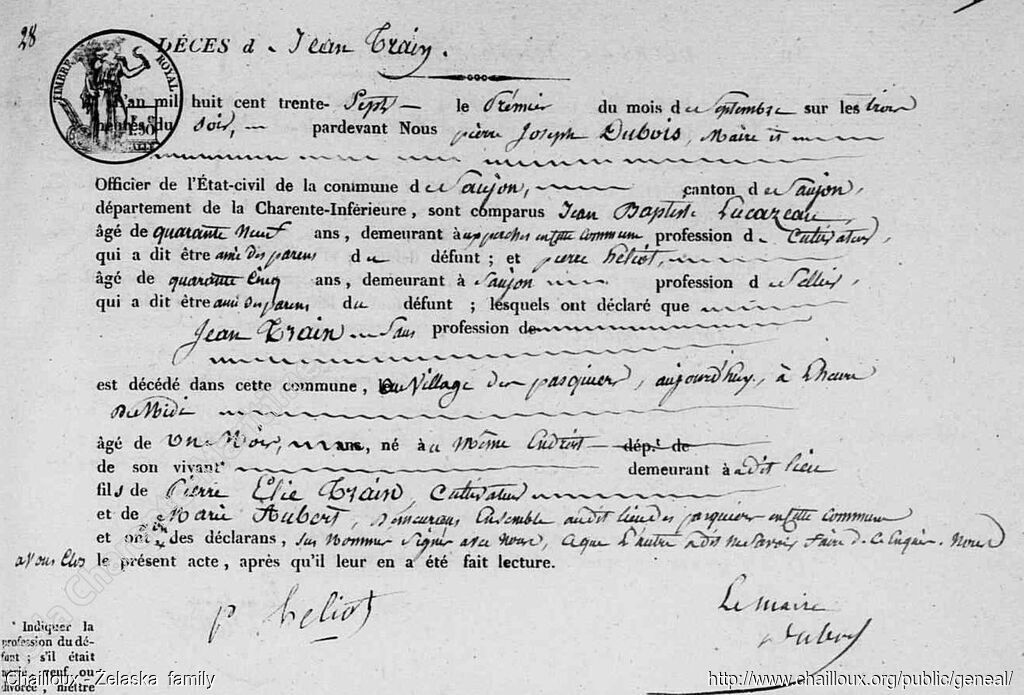 28
DÉCES de Jean Train.
TIMBRE ROYAL
L'an mil huit cent trente-Sept le Prémier du mois de Septembre sur les trois
heures du Soir, pardevant Nous pierre Joseph Dubois, Maire et
Officier de l'État-civil de la commune de Saujon, canton de Saujon,
département de la Charente-Inférieure, sont comparus Jean Baptiste Lucazeau,
âgé de quarante Neuf ans, demeurant à en cette Commune profession de Cultivateur,
qui a dit être ami des parens du défunt; et pierre héliot,
âgé de quarante Cinq ans, demeurant à Saujon profession de Sellier,
qui a dit être ami des parens du défunt; lesquels ont déclaré que
Jean Train Sans profession de
est décédé dans cette commune, au Village des pasquiers, aujourd'huy, à L'heure
De Midi
âgé de un Mois, ans, né au Même Endroit dép.t de
de son vivant* demeurant audit lieu
fils de Pierre Élie Train, Cultivateur
et de Marie Aubert, Demeurans Ensemble audit lieu des pasquiers en cette commune
et ont des déclarans, Signé avec Nous, Ce que L'autre a dit ne Savoir faire de Ce Enquis. Nous
avons Clos le présent acte, après qu'il leur en a été fait lecture.
p héliot
Le Maire
Dubois
* Indiquer la
profession du dé-
funt; s'il était
marié, veuf ou
divorcé, mettre
Chailloux - Żelaska family
http://www.chailloux.org/public/geneal/